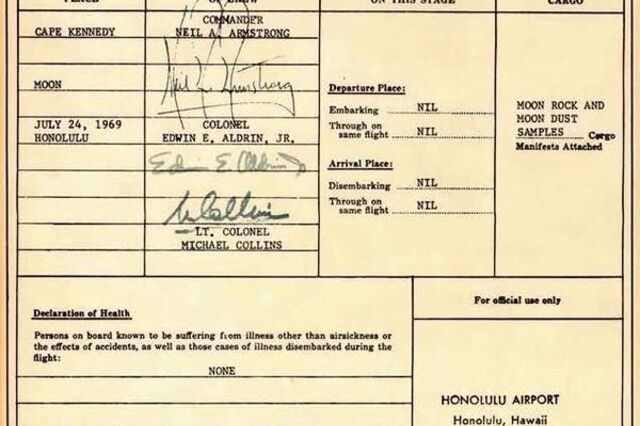 PLACE
OF CREW
ON THIS STAGE
CARGO
CAPE KENNEDY
COMMANDER
NEIL A. ARMSTRONG
Neil A. Armstrong
MOON
JULY 24, 1969
HONOLULU
COLONEL
EDWIN E. ALDRIN, JR.
Edwin E. Aldrin Jr
M Collins
LT. COLONEL
MICHAEL COLLINS
Departure Place:
Embarking NIL
Through on
same flight NIL
Arrival Place:
Disembarking NIL
Through on
same flight NIL
MOON ROCK AND
MOON DUST
SAMPLES Cargo
Manifests Attached
Declaration of Health
Persons on board known to be suffering from illness other than airsickness or
the effects of accidents, as well as those cases of illness disembarked during the
flight:
NONE
For official use only
HONOLULU AIRPORT
Honolulu, Hawaii